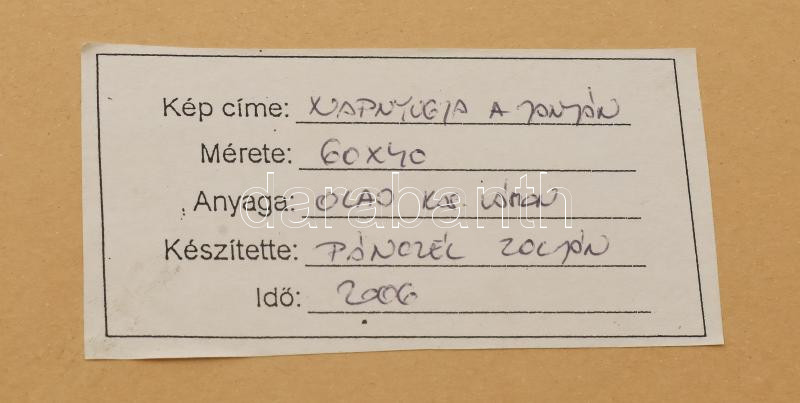 Kép címe: NAPNYUGTA A TANYÁN
Mérete: 60x40
Anyaga: OLAJ
Készítette: PÁNCZÉL ZOLTÁN
Idő: 2006
darabanth